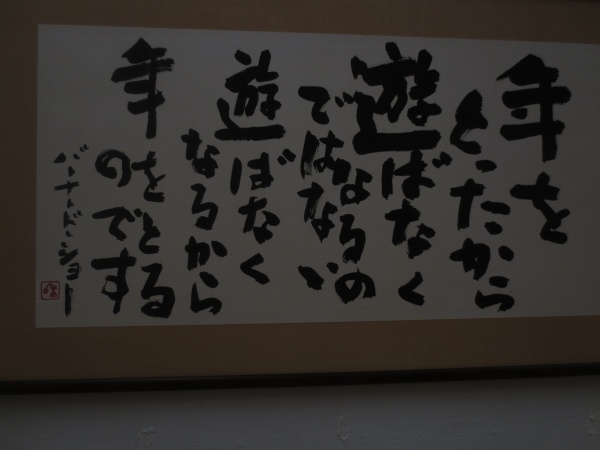 年を
とったから
遊ばなく
なるの
ではない
遊ばなく
なるから
年をとる
のです
バーナード・ショー